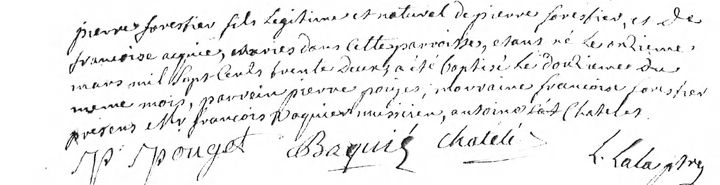 pierre forestier fils legitime et naturel de pierre forestier, et de
francoise acquie, maries dans cette parroisse, etant né le onzieme
mars mil sept cents trente deux, a été baptisé le douzieme du
meme mois, parrein pierre pouges, marraine francoise forestier
presens Mr francois Baquie musicien, antoine Chatelet
P Pouget Baquié Chatelé L. Lala ptre